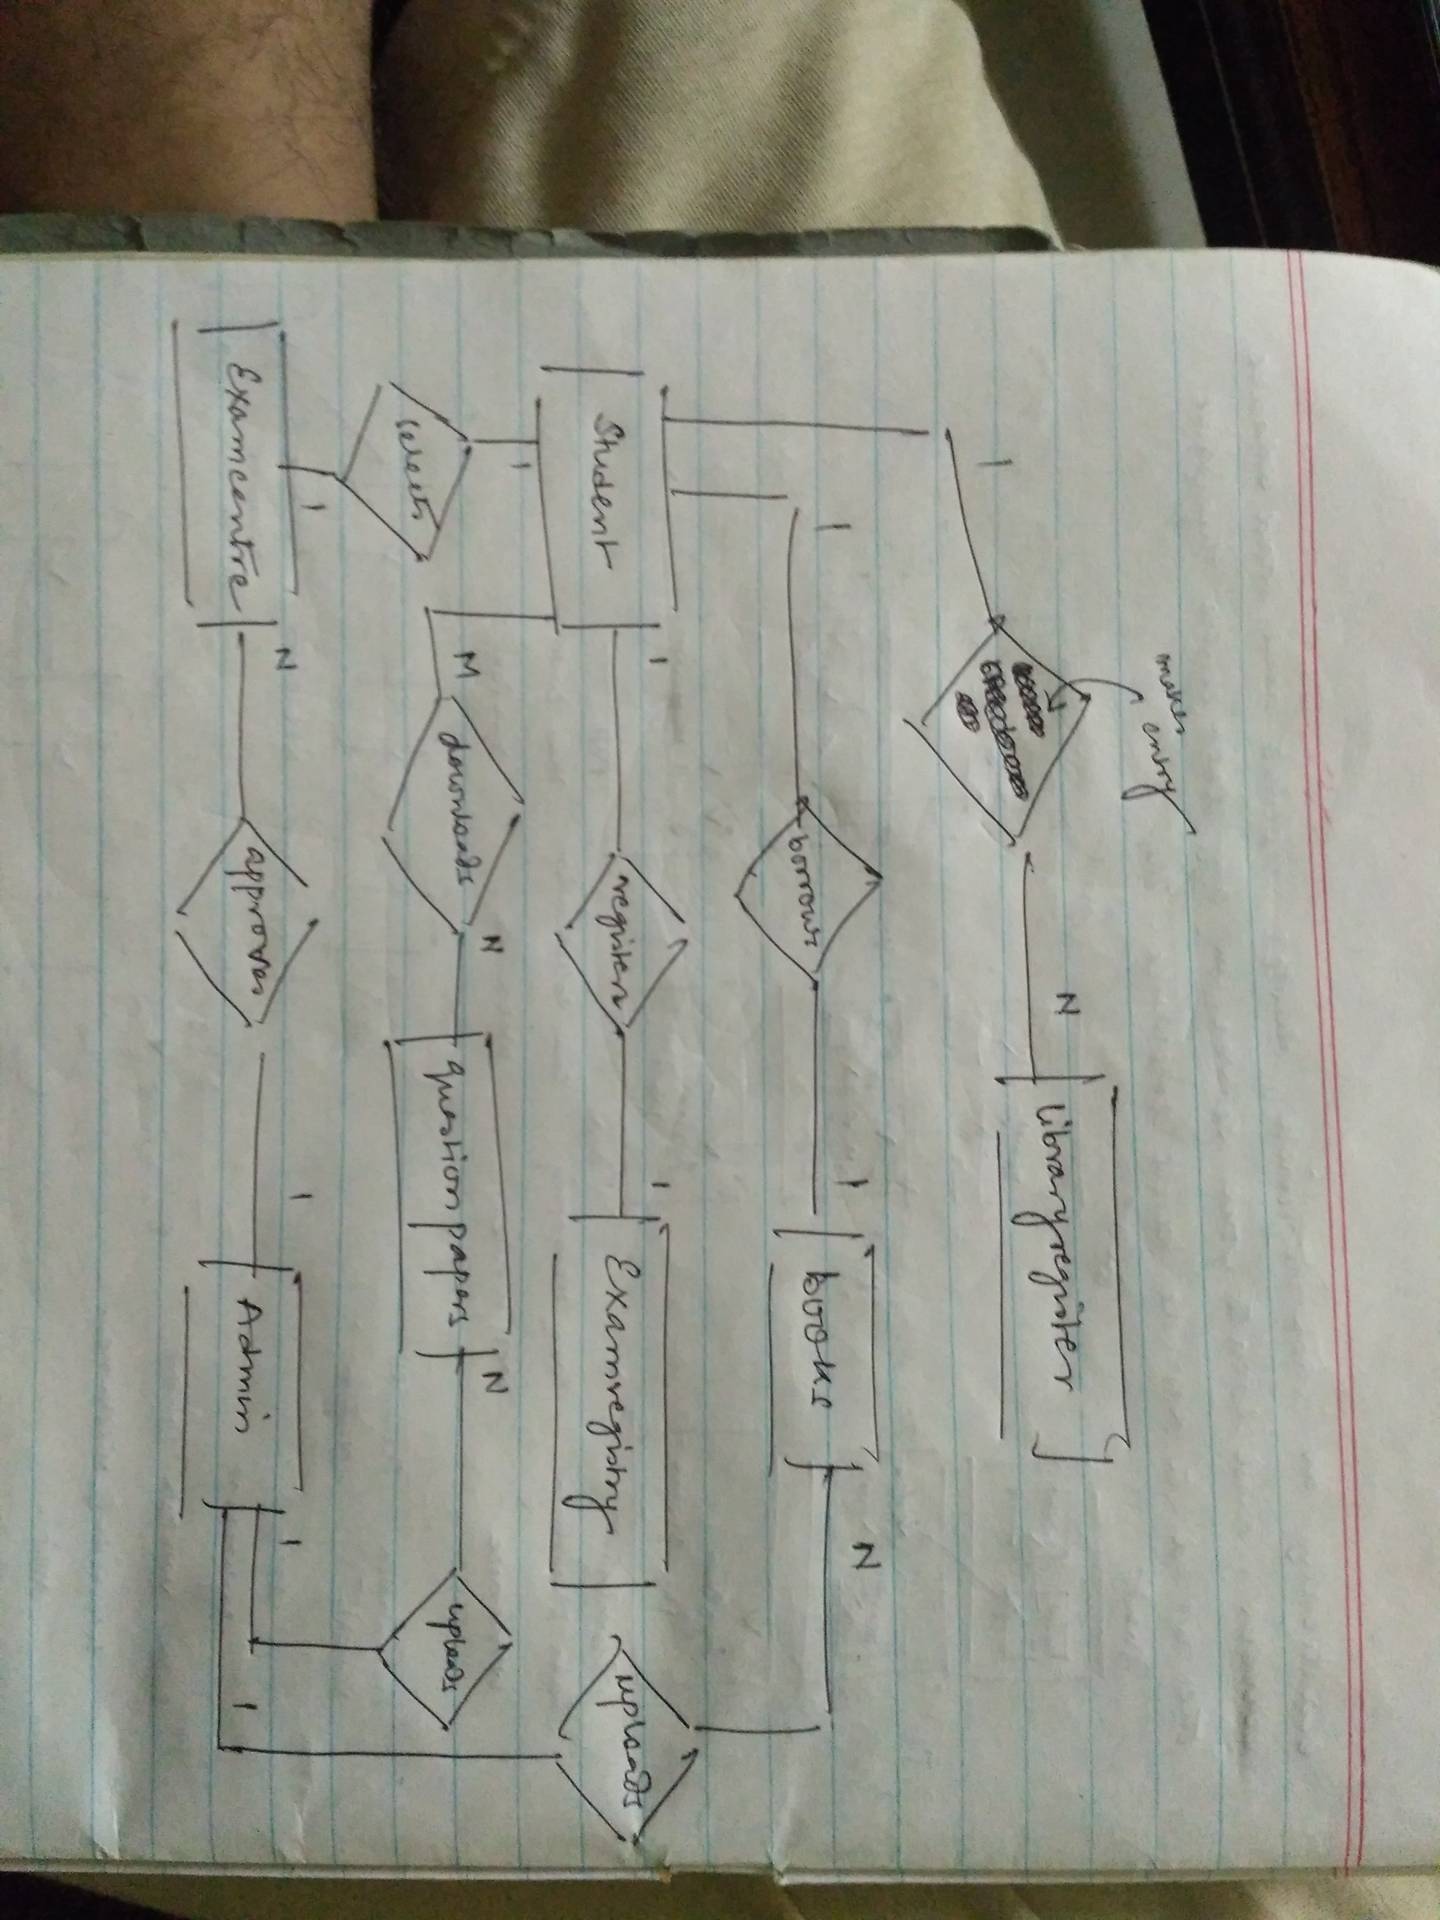 makes
entry
N
libraryregister
1
1
borrows
1
books
N
Student
1
registers
1
Examregistry
uploads
1
selects
M
downloads
N
questionpapers
N
uploads
1
Examcentre
N
approves
1
Admin
1
1